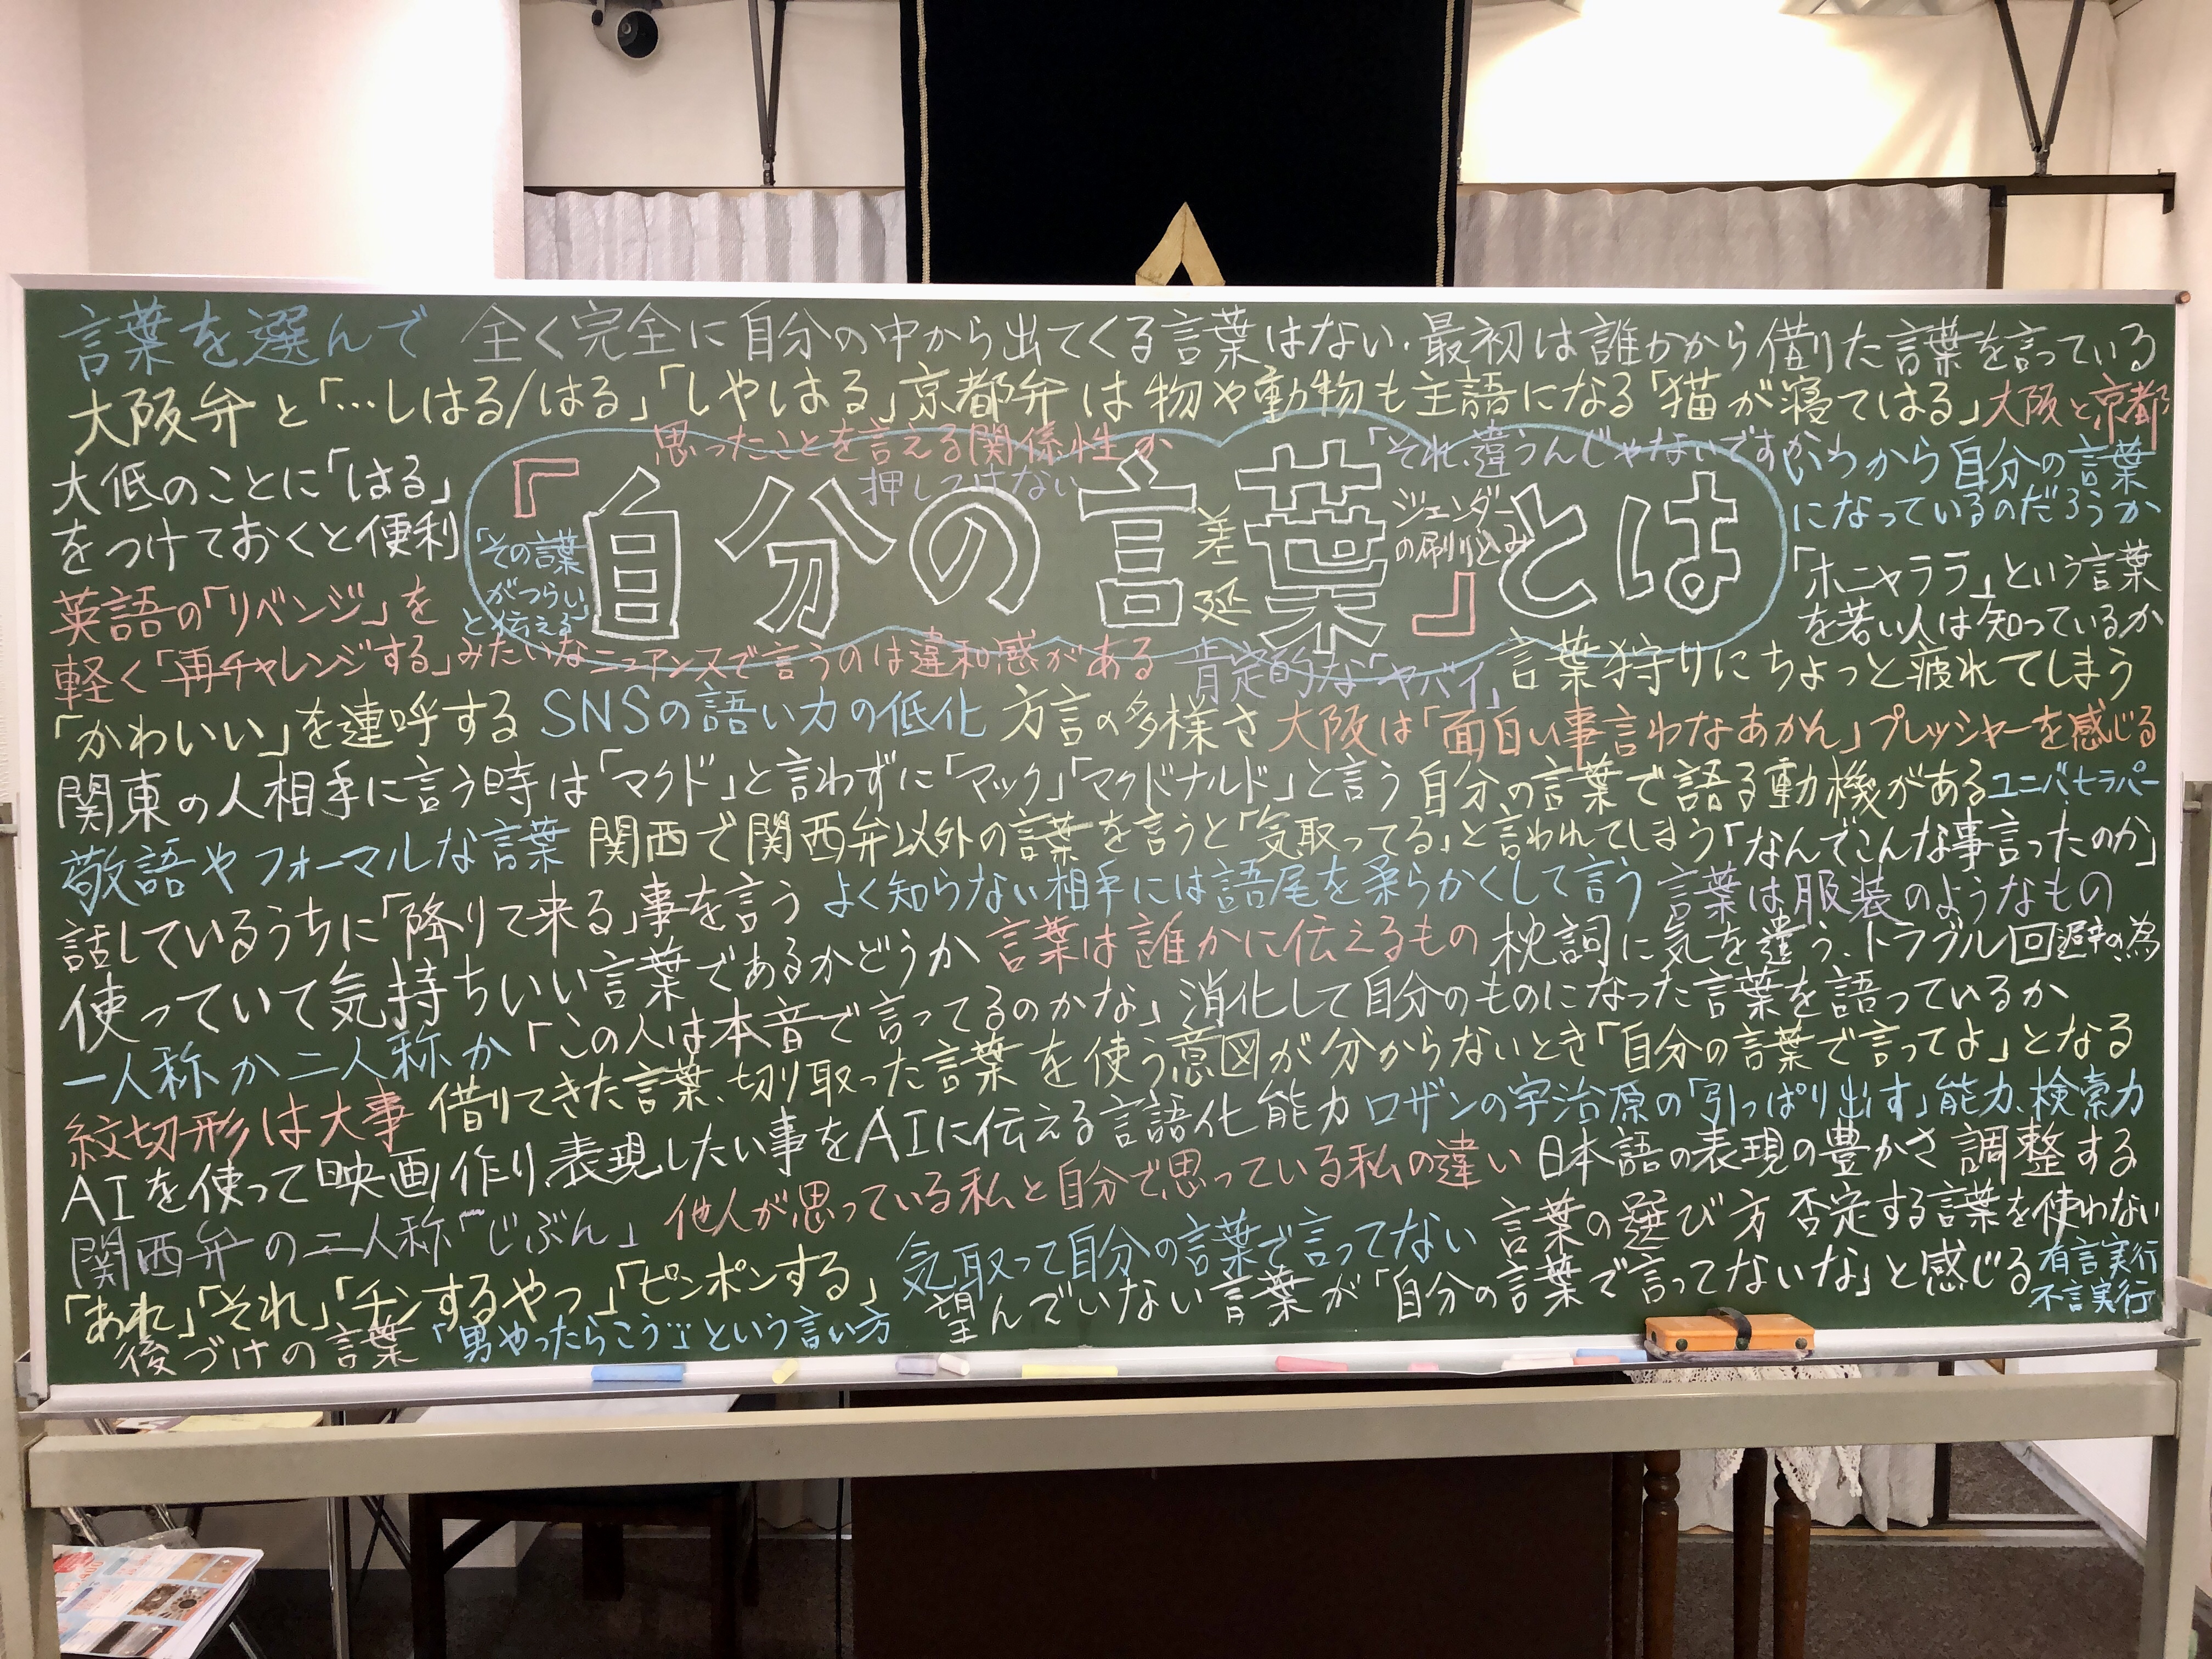 言葉を選んで 全く完全に自分の中から出てくる言葉はない.最初は誰かから借りた言葉を言っている
大阪弁と「…しはる/はる」「しやはる」京都弁は物や動物も主語になる「猫が寝てはる」大阪と京都
大低のことに「はる」
をつけておくと便利
思ったことを言える関係性か
押しつけない
「それ、違うんじゃないですか」
『自分の言葉』とは
「その言葉
がつらい」
と伝える
差延
ジェンダー
の刷り込み
いつから自分の言葉
になっているのだろうか
「ホニャララ」という言葉
を若い人は知っているか
英語の「リベンジ」を
軽く「再チャレンジする」みたいなニュアンスで言うのは違和感がある 肯定的な「ヤバイ」 言葉狩りにちょっと疲れてしまう
「かわいい」を連呼する SNSの語い力の低化 方言の多様さ 大阪は「面白い事言わなあかん」プレッシャーを感じる
関東の人相手に言う時は「マクド」と言わずに「マック」「マクドナルド」と言う 自分の言葉で語る動機がある ユニバ セラパー
敬語やフォーマルな言葉 関西で関西弁以外の言葉を言うと「気取ってる」と言われてしまう「なんでこんな事言ったのか」
話しているうちに「降りて来る」事を言う よく知らない相手には語尾を柔らかくして言う 言葉は服装のようなもの
使っていて気持ちいい言葉であるかどうか 言葉は誰かに伝えるもの 枕詞に気を遣う、トラブル回避の為
一人称か二人称か「この人は本音で言ってるのかな」消化して自分のものになった言葉を語っているか
紋切形は大事 借りてきた言葉、切り取った言葉を使う意図が分からないとき「自分の言葉で言ってよ」となる
AIを使って映画作り、表現したい事をAIに伝える言語化能力 ロザンの宇治原の「引っぱり出す」能力、検索力
関西弁の二人称「じぶん」 他人が思っている私と自分で思っている私の違い 日本語の表現の豊かさ 調整する
「あれ」「それ」「チンするやつ」「ピンポンする」 気取って自分の言葉で言ってない 言葉の選び方 否定する言葉を使わない
後づけの言葉 「男やったらこう」という言い方 望んでいない言葉が「自分の言葉で言ってないな」と感じる 有言実行
不言実行